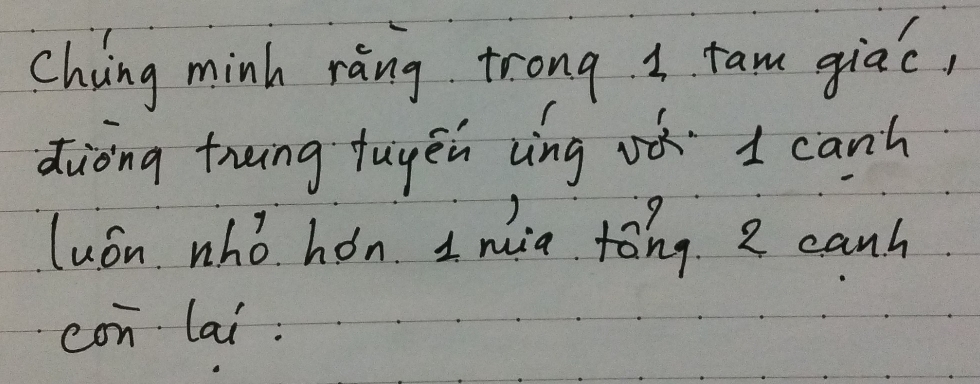 Chứng minh rằng trong 1 tam giác,
đường trung tuyến ứng với 1 cạnh
luôn nhỏ hơn 1 nửa tổng 2 cạnh
còn lại.